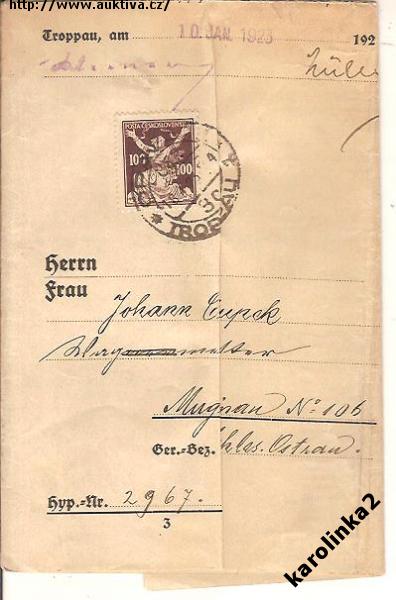 http://www.auktiva.cz/
Troppau, am 10. JAN. 1923 192
POSTA ČESKOSLOVENSKÁ
100 100
TROPPAU
Herrn
Frau
Johann Cupek
Mugnau No 106
Ger.-Bez. Schles. Ostrau.
Hyp.-Nr. 2967.
3
karolinka2